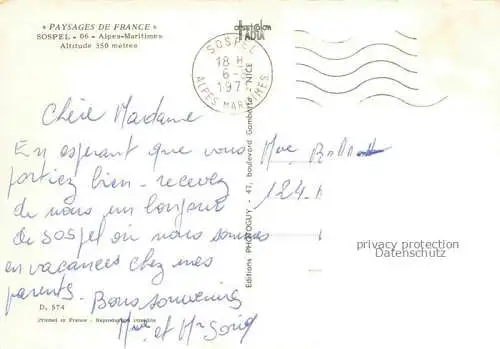 « PAYSAGES DE FRANCE »
SOSPEL - 06 - Alpes-Maritimes
Altitude 350 mètres
SOSPEL
18 H
6-
197
ALPES MARITIMES
Chère Madame
En esperant que vous
portiez bien - recevez
de nous un bonjour
de SOSPEL où nous sommes
en vacances chez mes
parents - Bons souvenirs
Mme et Mr
D. 574
Printed in France - Reproduction interdite
Editions PHOTOGUY - 47, boulevard Gambetta - NICE
Mme
124 -
privacy protection
Datenschutz